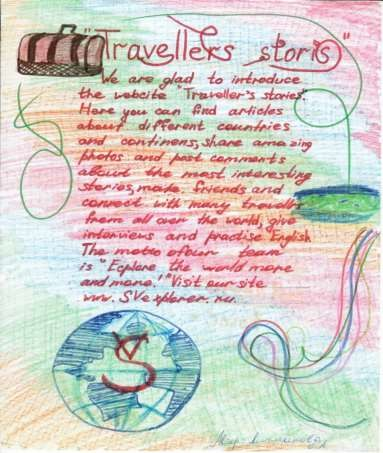 "Travellers storis"
We are glad to introduce
the website "Traveller's stories".
Here you can find articles
about different countries
and continens, share amazing
photos and post comments
about the most interesting
stories, make friends and
connect with many travellers
from all over the world, give
interviews and practise English
The motto of our team
is "Explore the world more
and more!" Visit our site
www.SVexplorer.ru.
SV